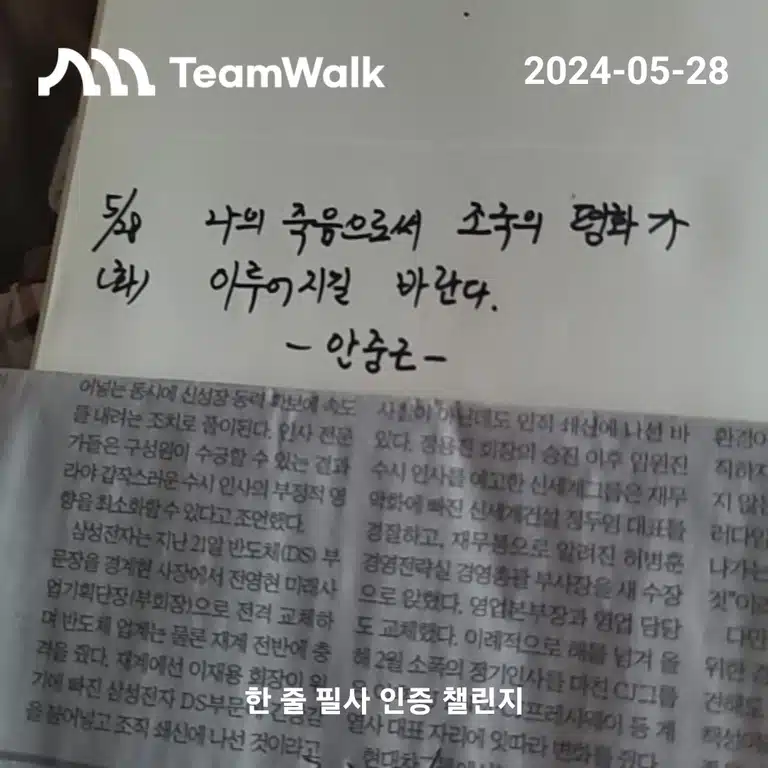 TeamWalk
2024-05-28
5/28 나의 죽음으로써 조국의 평화가
(화) 이루어지길 바란다.
- 안중근 -
어넣는 동시에 신성장 동력 확보에 속도
를 내려는 조치로 풀이된다. 인사 전문
가들은 구성원이 수긍할 수 있는 결과
라야 갑작스러운 수시 인사의 부정적 영
향을 최소화할 수 있다고 조언했다.
삼성전자는 지난 21일 반도체(DS) 부
문장을 경계현 사장에서 전영현 미래사
업기획단장(부회장)으로 전격 교체하
며 반도체 업계는 물론 재계 전반에 충
격을 줬다. 재계에선 이재용 회장이 위
기에 빠진 삼성전자 DS부문
을 불어넣고 조직 쇄신에 나선 것이라고
아닌데도 인적 쇄신에 나선 바
있다. 정용진 회장의 승진 이후 임원진
수시 인사를 예고한 신세계그룹은 재무
악화에 빠진 신세계건설 정두영 대표를
경질하고, 재무통으로 알려진 허병훈
경영전략실 경영총괄 부사장을 새 수장
으로 앉혔다. 영업본부장과 영업 담당
도 교체했다. 이례적으로 해를 넘겨 올
해 2월 소폭의 정기인사를 마친 CJ그룹
프레시웨이 등 계
열사 대표 자리에 잇따라 변화를 줬다.
현대차
환경이
직하지
지 않는
러다임
나가는
것"이라
다만
위한 경
건해도
한 줄 필사 인증 챌린지